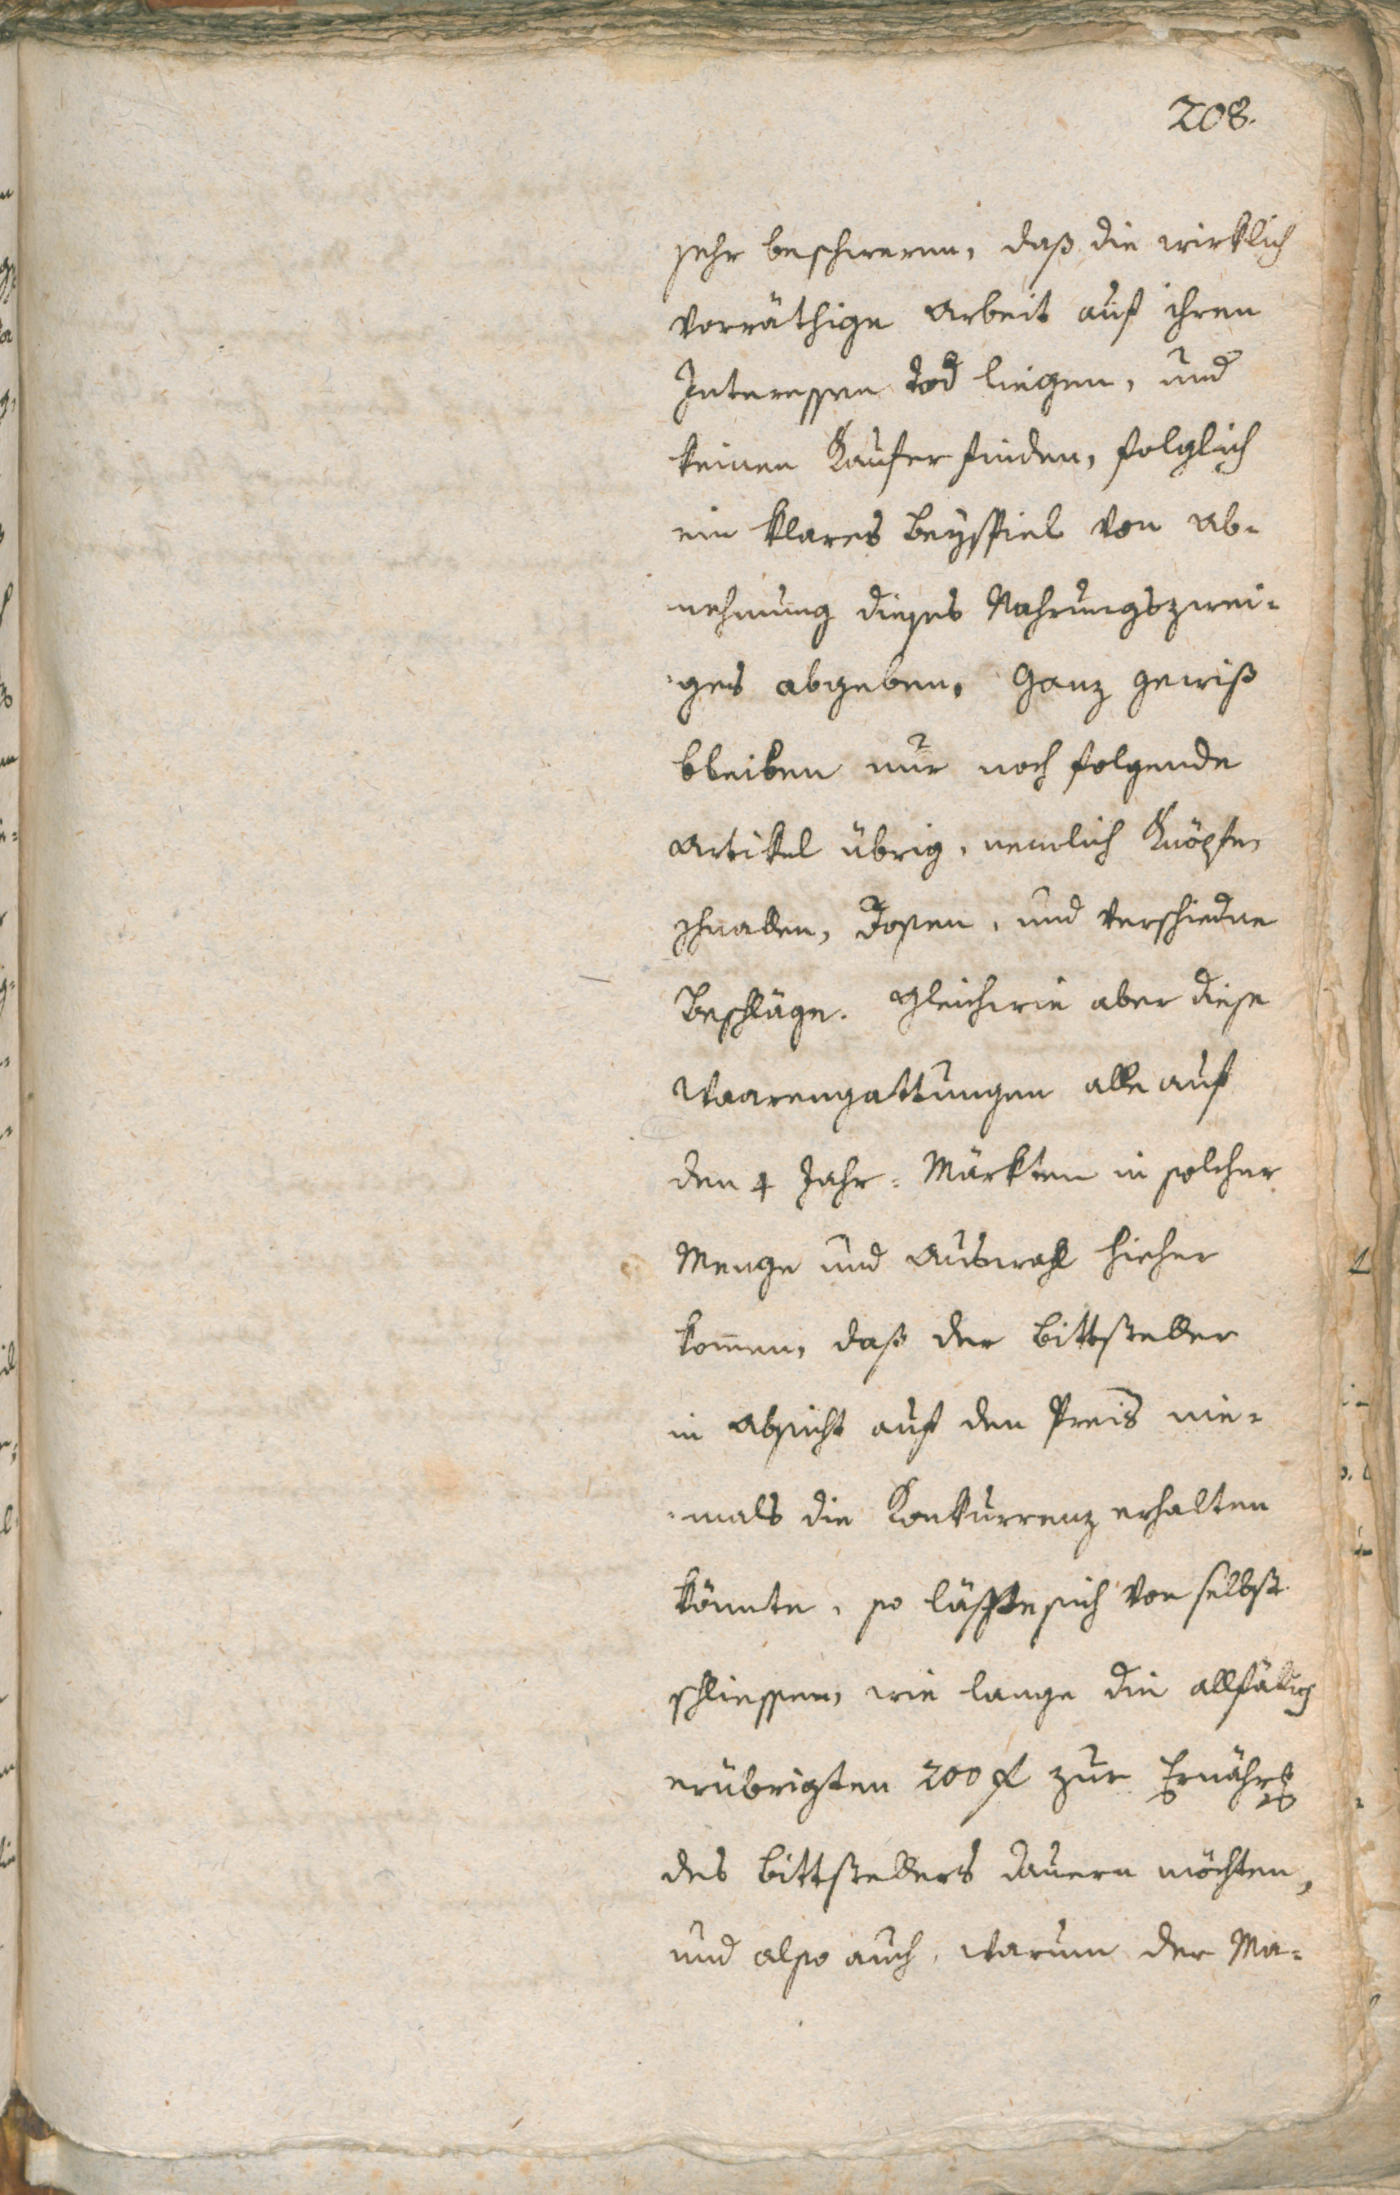 208.
sehr beschweren, daß die wirklich
vorräthige Arbeit auf ihren
Interessen tod liegen, und
keinen Kaufer finden, folglich
ein klares Beyspiel von Ab-
nehmung dieses Nahrungszwei-
ges abgeben. Ganz gewiß
bleiben nur noch folgende
Artikel übrig, nemlich Knöpfe,
Schnallen, Dosen, und verschiedne
Beschläge. Gleichwie aber diese
Waarengattungen alle auf
den 4 Jahr-Märkten in solcher
Menge und Auswahl hieher
kom̄en, daß der Bittsteller
in Absicht auf den Preis nie-
mals die Konkurrenz erhalten
könnte, so läßt sich von selbst
schliessen, wie lange die allfällig
erübrigten 200 f zur
des Bittstellers dauern möchten,
und also auch, warum der Ma-